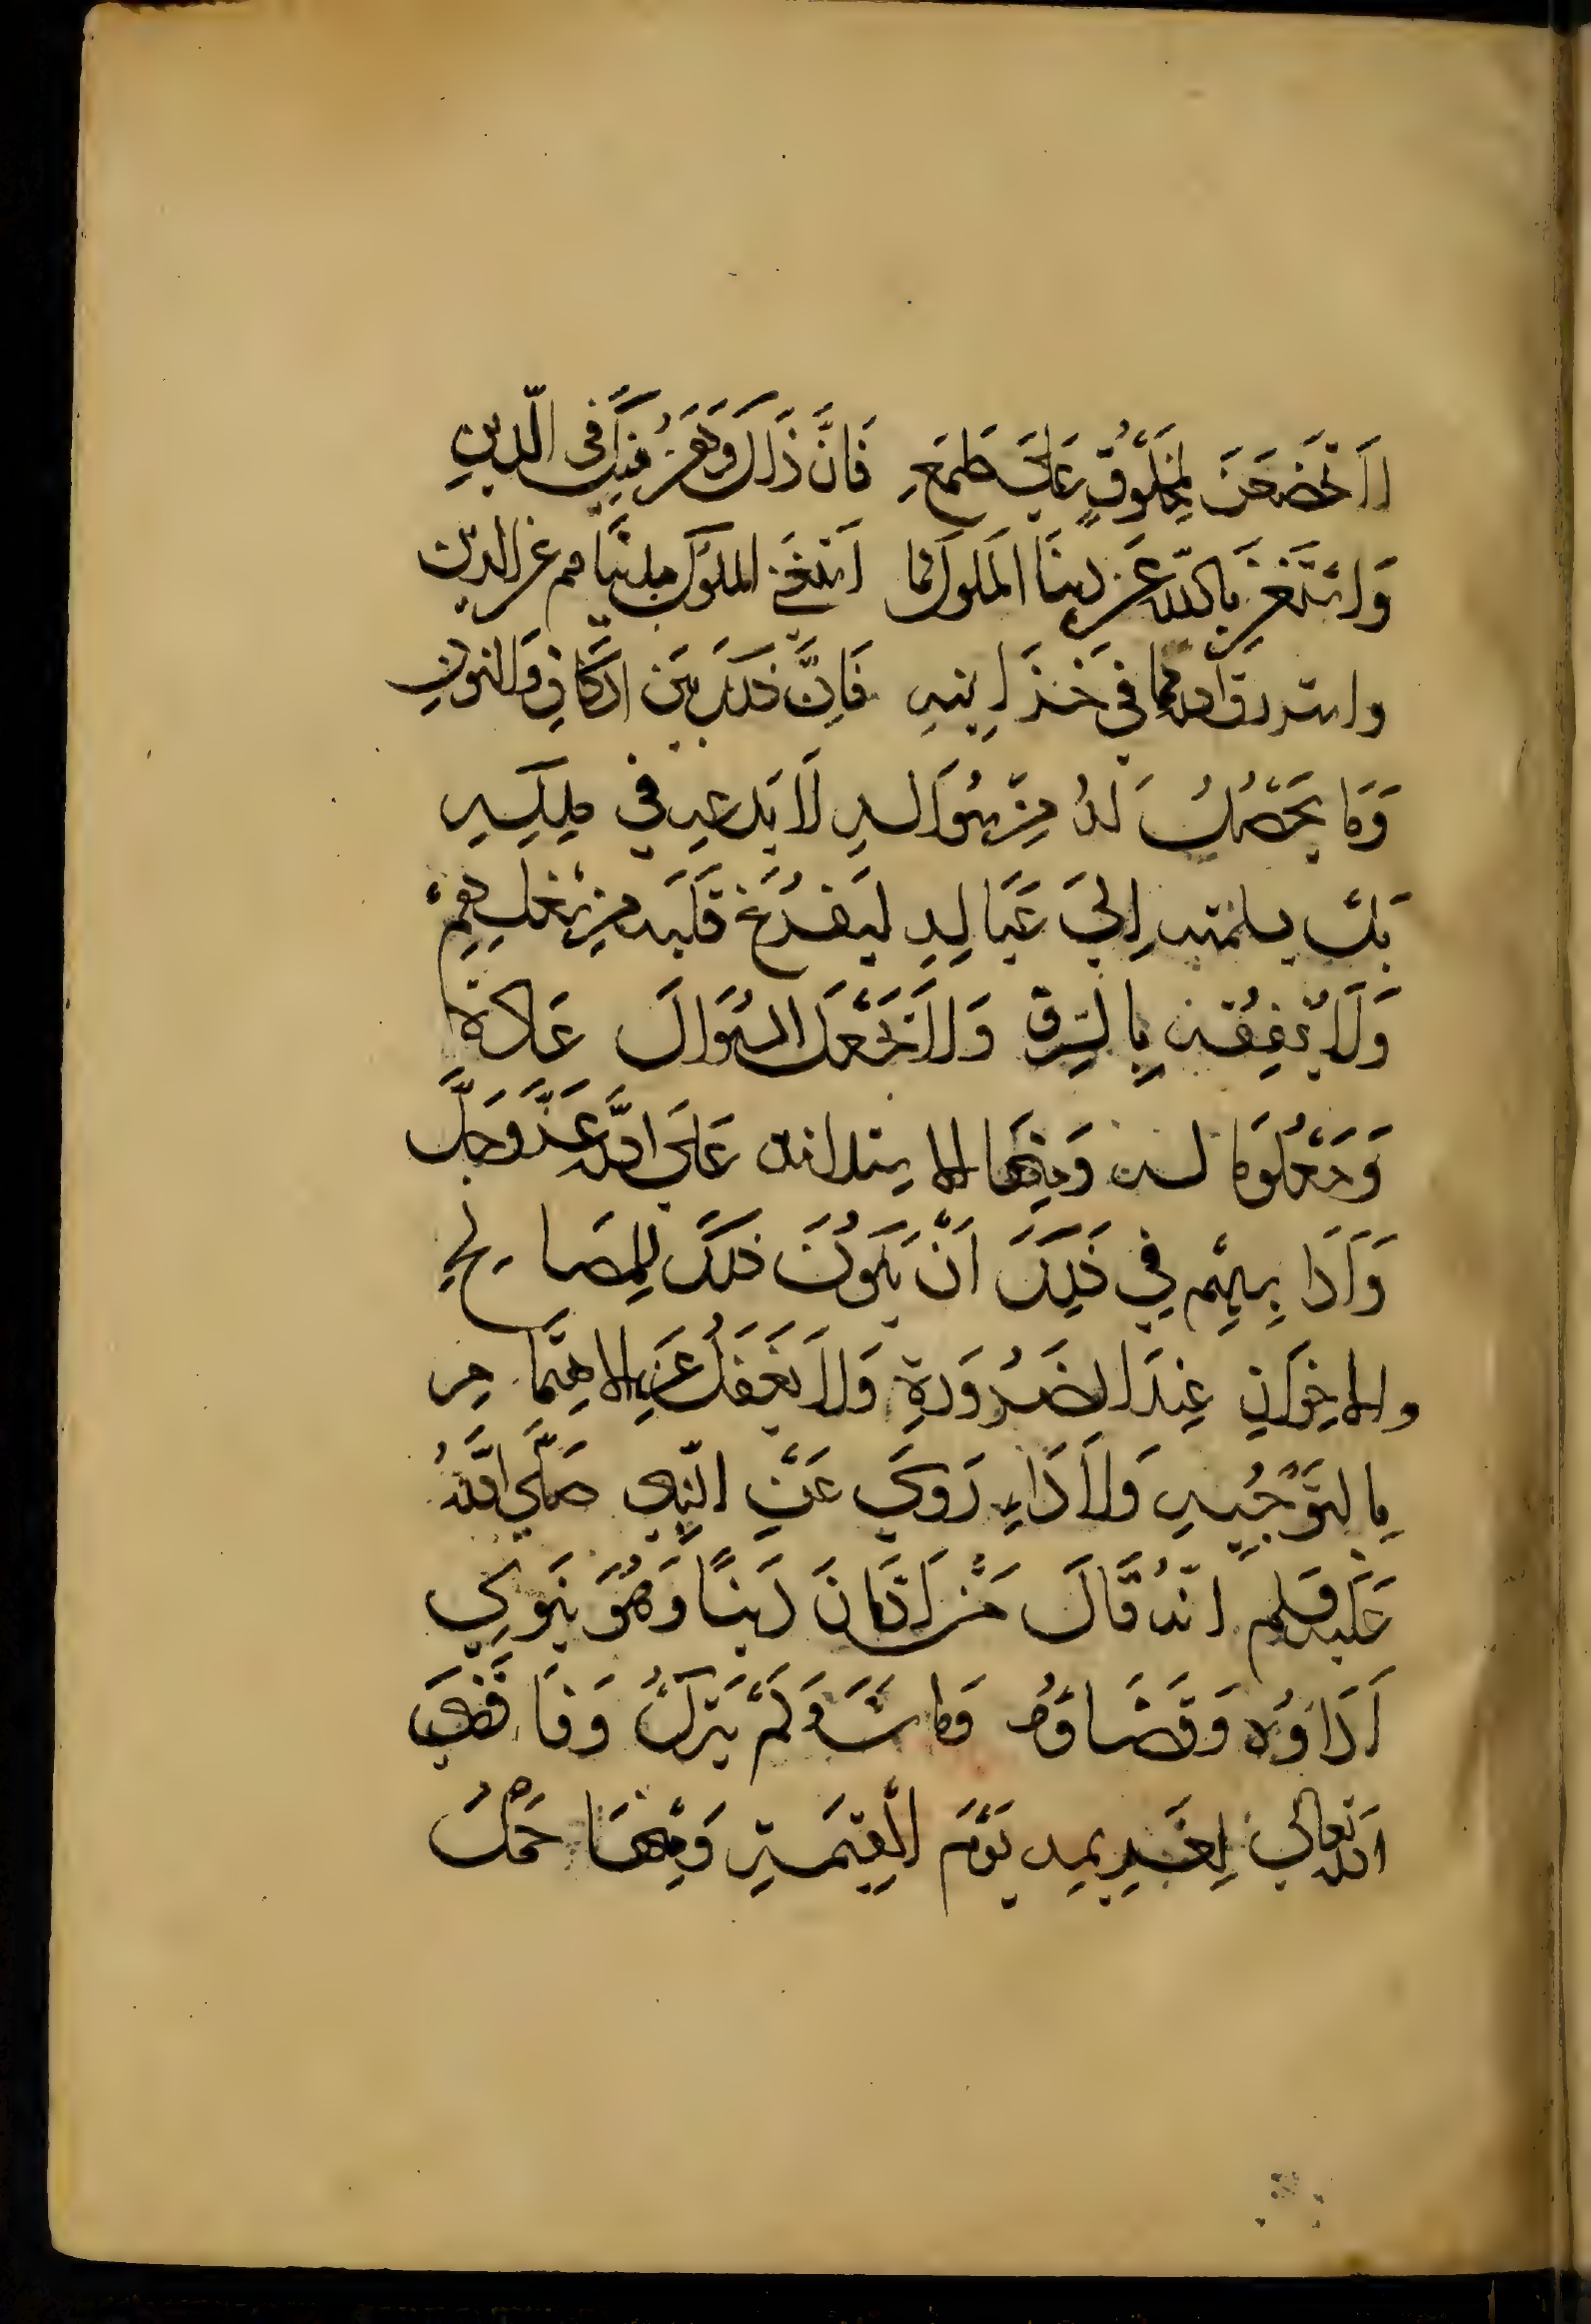 لا تخضعن لمخلوق على طمع فان ذاك وهن منك في الدين
واستغن بالله عن دنيا الملوك كما استغنى الملوك بدنياهم عن الدين
واسترزق الله مما في خزاينه فان ذلك بين الكاف والنون
وَمَا يَحْصُلُ لَهُ مِنْ سُوَالِهِ لَا يدعه فِي مِلْكِهِ
بَلْ يسلمه اِلَى عَيَالِهِ لِيَفْرُغَ قَلْبَه مِنْ شغلهم
وَلَا يُنْفِقُهُ بِالسَّرَفِ وَلَا يَجْعَلَ السُّوَالَ عَادَةً
وَمَعْلُومًا له وَمِنْهَا الاستدانه عَلَى الله عَزَّ وَجَلَّ
وَادَابهم فِي ذَلِكَ اَنْ يَكُونَ ذَلِكَ لِلْمَصَالِحِ
والاخوان عِنْدَ الضَرُورَةِ وَلَا يَغْفَلُ عَنِ الاهتمامِ
بِالتوجيه وَالاَدَاءِ رَوِيَ عَنْ النَّبِي صَلَّى اللهُ
عَلَيه وسلم انَّهُ قَالَ مَنْ ادَّانَ دَيْنًا وَهُوَ يَنْوِي
اَدَاوُه وَقَضَاوُه وَمات وَلَمْ يَتْرَكْ وَفَا قضى
الله تعالى لِغَرِيمِه يَوْمَ الْقِيَمَةِ وَمِنْهَا حَمْلُ